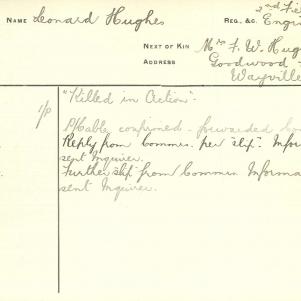 2nd Fie
NAME Leonard Hughes REG. &c. Engi
NEXT OF KIN Mrs F. W. Hug
ADDRESS Goodwood
Wayville
1/p "Killed in Action".
P/Cable confirmed - forwarded
Reply from Commrs. per "slip". Infor
sent Inquirer.
Further slip from Common Informa
sent Inquirer.